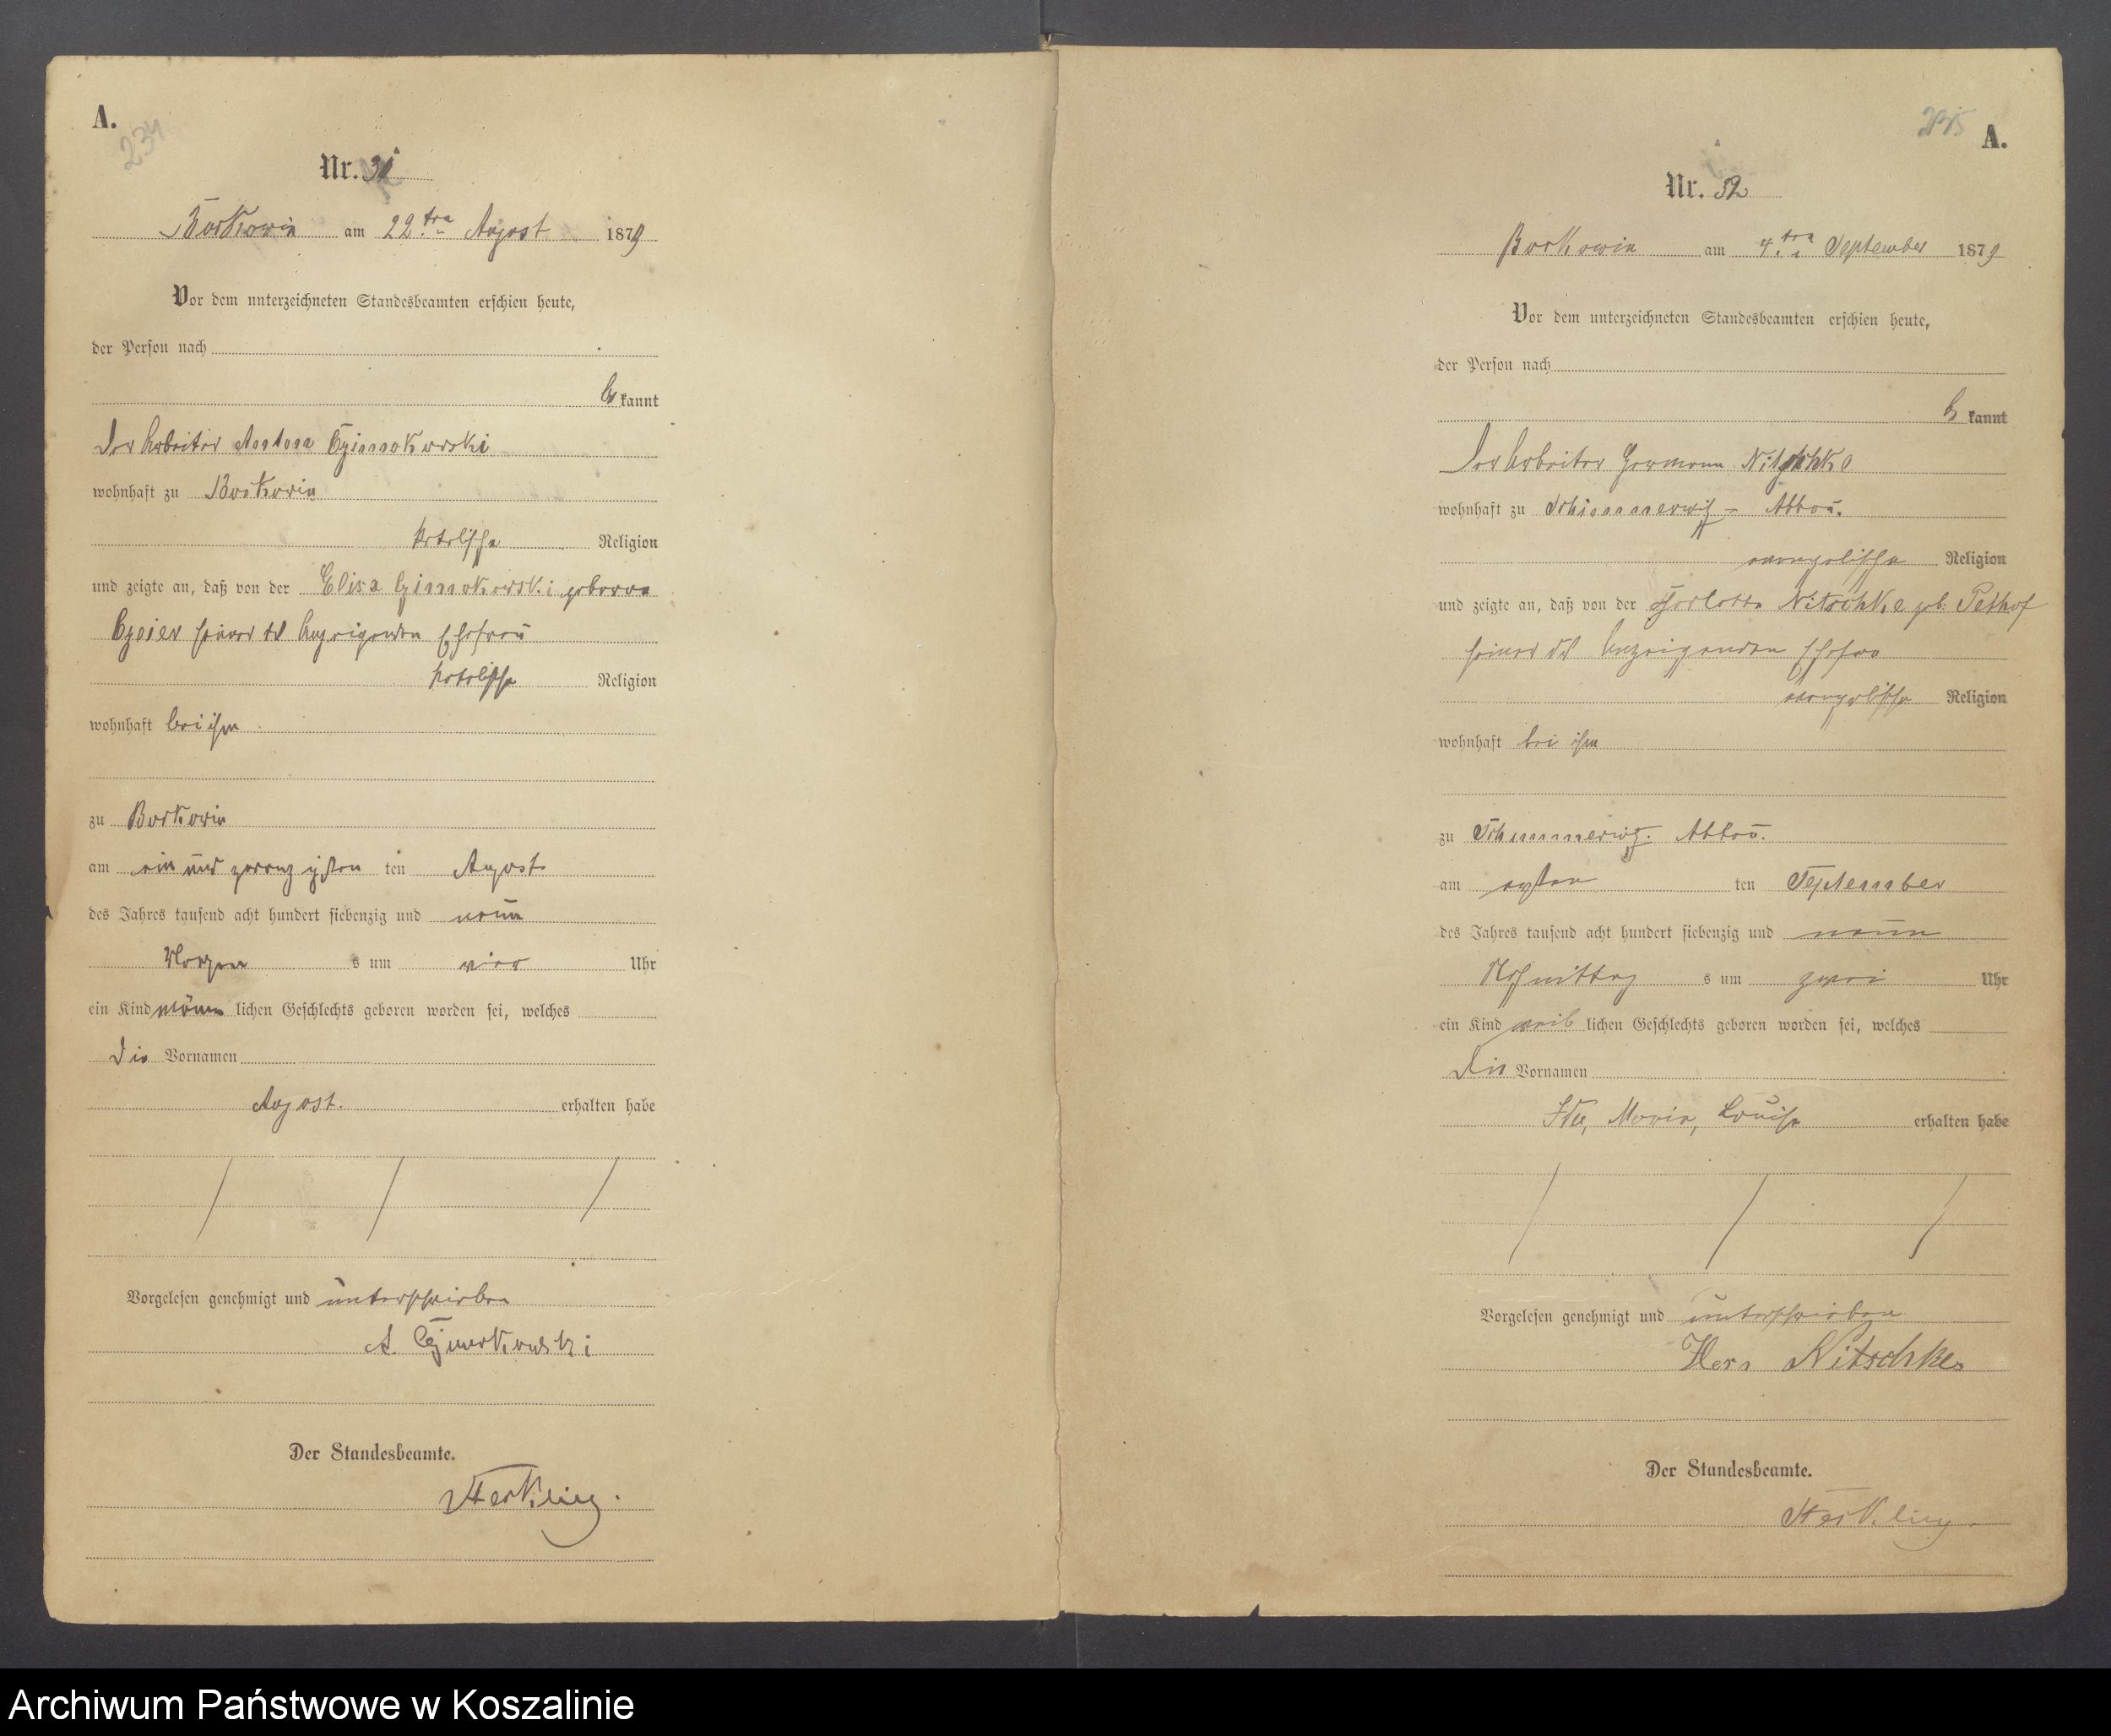 A.
234
Nr. 31
Borkowin am 22.ten Agost 1879
Vor dem unterzeichneten Standesbeamten erschien heute,
der Person nach
be kannt
Der Arbeiter Antona
wohnhaft zu Borkowin
katolische Religion
und zeigte an, daß von der Elisa geborene
seiner des Anzeigenden Ehefrau
katolische Religion
wohnhaft bei ihm
zu Borkowin
am ein und zwanzigsten ten Agost
des Jahres tausend acht hundert siebenzig und neun
Morgen s um vier Uhr
ein Kind männ lichen Geschlechts geboren worden sei, welches
die Vornamen
Agost. erhalten habe
Vorgelesen genehmigt und unterschrieben
A.
Der Standesbeamte.
235
A.
Nr. 32
Borkowin am 4.ten September 1879
Vor dem unterzeichneten Standesbeamten erschien heute,
der Person nach
be kannt
Der Arbeiter Hermann Nitschke
wohnhaft zu Schimmerwitz - Abbau.
evangelische Religion
und zeigte an, daß von der Charlotte Nitschke geb:
seiner des Anzeigenden Ehefrau
evangelische Religion
wohnhaft bei ihm
zu Schimmerwitz. Abbau.
am ersten ten September
des Jahres tausend acht hundert siebenzig und neun
Nachmittag s um zwei Uhr
ein Kind weib lichen Geschlechts geboren worden sei, welches
die Vornamen
Maria, Louise erhalten habe
Vorgelesen genehmigt und unterschrieben
Herm Nitschke
Der Standesbeamte.
Archiwum Państwowe w Koszalinie